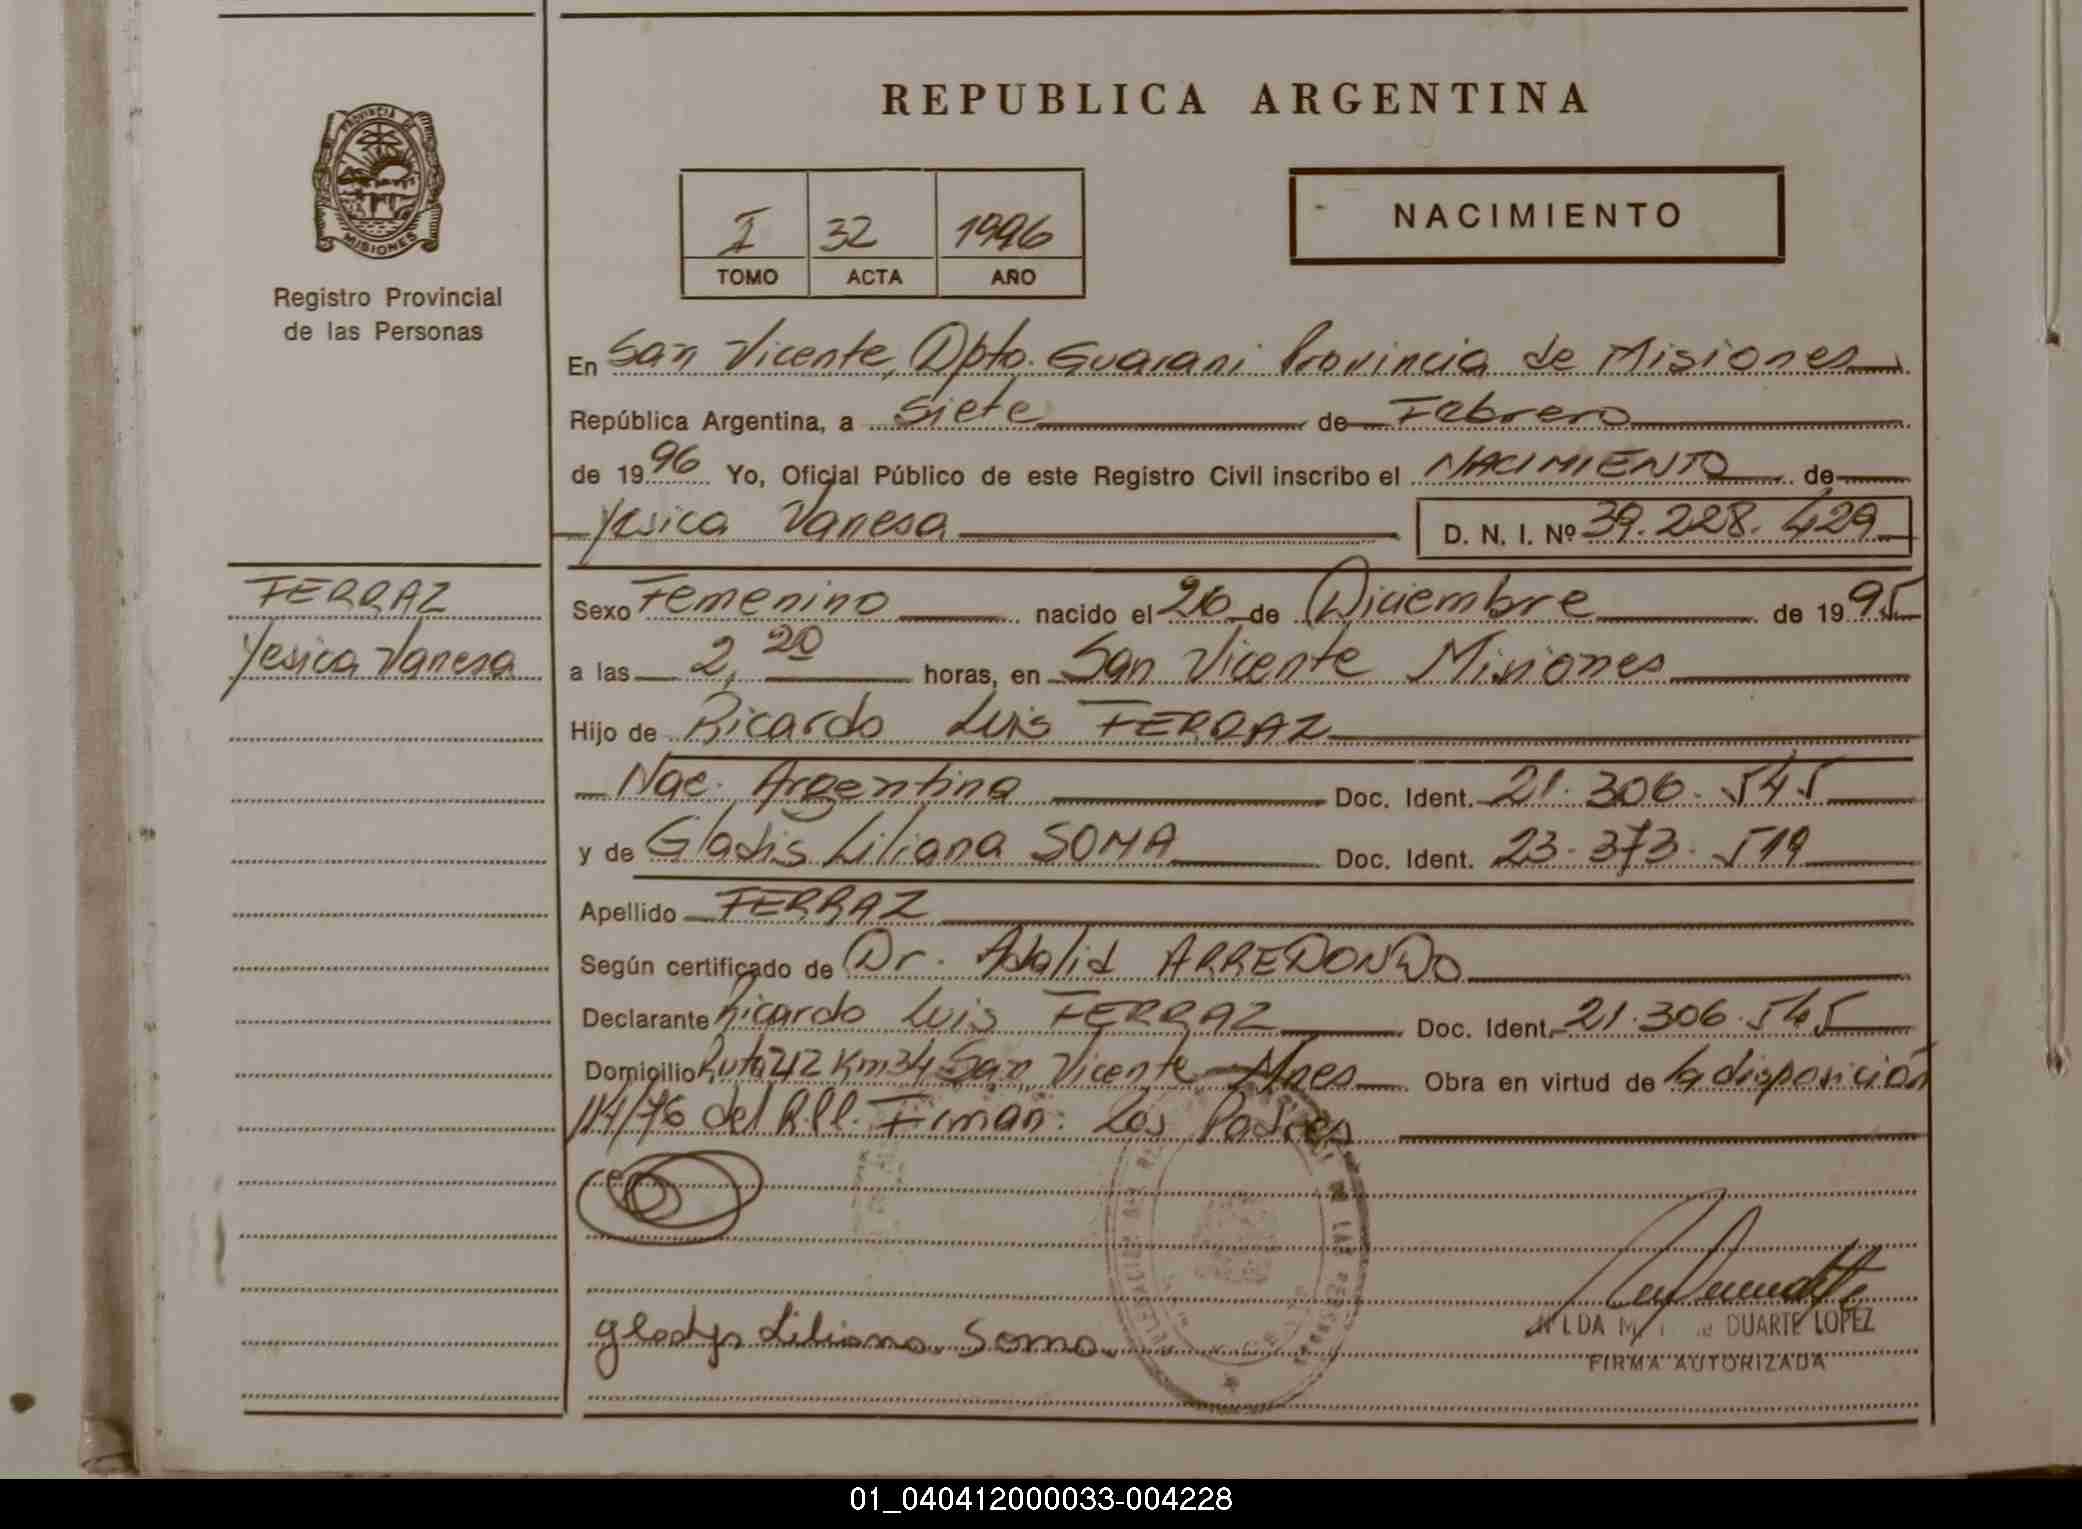 REPUBLICA ARGENTINA
PROVINCIA DE
MISIONES
Registro Provincial
de las Personas
I 32 1996
TOMO ACTA AÑO
NACIMIENTO
En San Vicente, Dpto. Guarani Provincia de Misiones
República Argentina, a Siete de Febrero
de 1996 Yo, Oficial Público de este Registro Civil inscribo el NACIMIENTO de
Yesica Vanesa D. N. I. Nº 39.228.429
FERRAZ
Yesica Vanesa
Sexo Femenino nacido el 26 de Diciembre de 1995
a las 2,20 horas, en San Vicente Misiones
Hijo de Ricardo Luis FERRAZ
Nac. Argentina Doc. Ident. 21.306.545
y de Gladis Liliana SOMA Doc. Ident. 23.373.519
Apellido FERRAZ
Según certificado de Dr. Adalid ARREDONDO
Declarante Ricardo Luis FERRAZ Doc. Ident. 21.306.545
Domicilio Ruta 212 Km 34 San Vicente Mnes Obra en virtud de la disposición
114/76 del R.P.P. Firman: Los Padres
Gladys Liliana Soma.
DUARTE LOPEZ
FIRMA AUTORIZADA
01_040412000033-004228